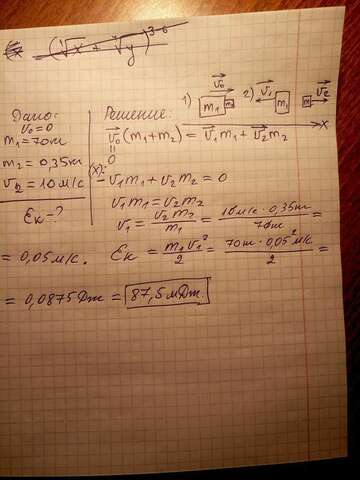 (∜x + ∜y)³⁻⁶
Дано:
v₀ = 0
m₁ = 70кг
m₂ = 0,35кг
v₂ = 10 м/с
Eк - ?
Решение:
1) v⃗₀ m₁ m₂ 2) v⃗₁ m₁ m₂ v⃗₂
x
v⃗₀(m₁+m₂) = v⃗₁m₁ + v⃗₂m₂
||
0
(x): -v₁m₁ + v₂m₂ = 0
v₁m₁ = v₂m₂
v₁ = v₂m₂/m₁ = 10 м/с · 0,35кг/70кг =
= 0,05 м/с. Eк = m₁v₁²/2 = 70кг · 0,05² м/с/2 =
= 0,0875 Дж = 87,5 мДж.